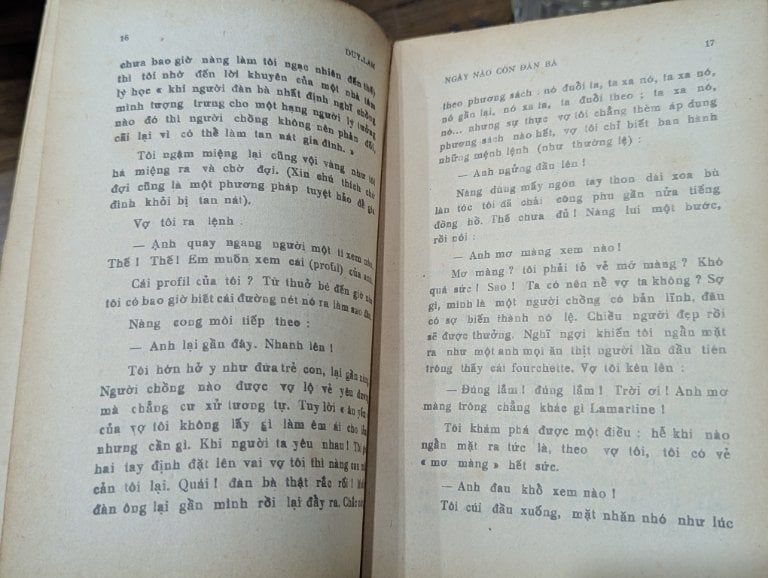 16
DUY-LAM
chưa bao giờ nàng làm tôi ngạc nhiên đến thế
thì tôi nhờ đến lời khuyên của một nhà tâm
lý học « khi người đàn bà nhất định nghĩ chồng
mình tượng trưng cho một hạng người lý tưởng
nào đó thì người chồng không nên phản đối,
cãi lại vì có thể làm tan nát gia đình. »
Tôi ngậm miệng lại cũng vội vàng như lúc
há miệng ra và chờ đợi. (Xin chú thích chờ
đợi cũng là một phương pháp tuyệt hảo để gia
đình khỏi bị tan nát).
Vợ tôi ra lệnh.
— Anh quay ngang người một tí xem nào.
Thế ! Thế! Em muốn xem cái (profil) của anh.
Cái profil của tôi ? Từ thuở bé đến giờ nào
tôi có bao giờ biết cái đường nét nó ra làm sao đâu.
Nàng cong môi tiếp theo :
— Anh lại gần đây. Nhanh lên !
Tôi hớn hở y như đứa trẻ con, lại gần nàng
Người chồng nào được vợ lộ vẻ yêu đương
mà chẳng cư xử tương tự. Tuy lời « âu yếm
của vợ tôi không lấy gì làm êm ái cho
nhưng cần gì. Khi người ta yêu nhau ! Thì
hai tay định đặt lên vai vợ tôi thì nàng
cản tôi lại. Quái ! đàn bà thật rắc rối !
đàn ông lại gần mình rồi lại đẩy ra. Chắc
NGÀY NÀO CÒN ĐÀN BÀ
17
theo phương sách : nó đuổi ta, ta xa nó, ta xa nó,
nó gần lại, nó xa ta, ta đuổi theo ; ta xa nó,
nó... nhưng sự thực vợ tôi chẳng thèm áp dụng
phương sách nào hết, vợ tôi chỉ biết ban hành
những mệnh lệnh (như thường lệ) :
— Anh ngửng đầu lên !
Nàng dùng mấy ngón tay thon dài xoa bù
làn tóc tôi đã chải công phu gần nửa tiếng
đồng hồ. Thế chưa đủ ! Nàng lui một bước,
rồi nói :
— Anh mơ màng xem nào !
Mơ màng ? tôi phải tỏ vẻ mơ màng ? Khó
quá sức ! Sao ! Ta có nên nề vợ ta không ? Sợ
gì, mình là một người chồng có bản lĩnh, đâu
có sợ biến thành nô lệ. Chiều người đẹp rồi
sẽ được thưởng. Nghĩ ngợi khiến tôi ngần mặt
ra như một anh mọi ăn thịt người lần đầu tiên
trông thấy cái fourchette. Vợ tôi kêu lên :
— Đúng lắm ! đúng lắm ! Trời ơi ! Anh mơ
màng trông chẳng khác gì Lamartine !
Tôi khám phá được một điều : hễ khi nào
ngần mặt ra tức là, theo vợ tôi, tôi có vẻ
« mơ màng » hết sức.
— Anh đau khổ xem nào !
Tôi cúi đầu xuống, mặt nhăn nhó như lúc